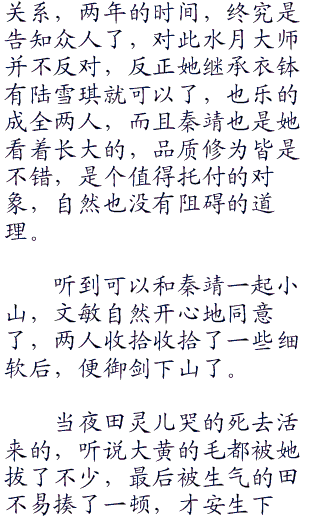 关系，两年的时间，终究是
告知众人了，对此水月大师
并不反对，反正她继承衣钵
有陆雪琪就可以了，也乐的
成全两人，而且秦靖也是她
看着长大的，品质修为皆是
不错，是个值得托付的对
象，自然也没有阻碍的道
理。
听到可以和秦靖一起小
山，文敏自然开心地同意
了，两人收拾收拾了一些细
软后，便御剑下山了。
当夜田灵儿哭的死去活
来的，听说大黄的毛都被她
拔了不少，最后被生气的田
不易揍了一顿，才安生下